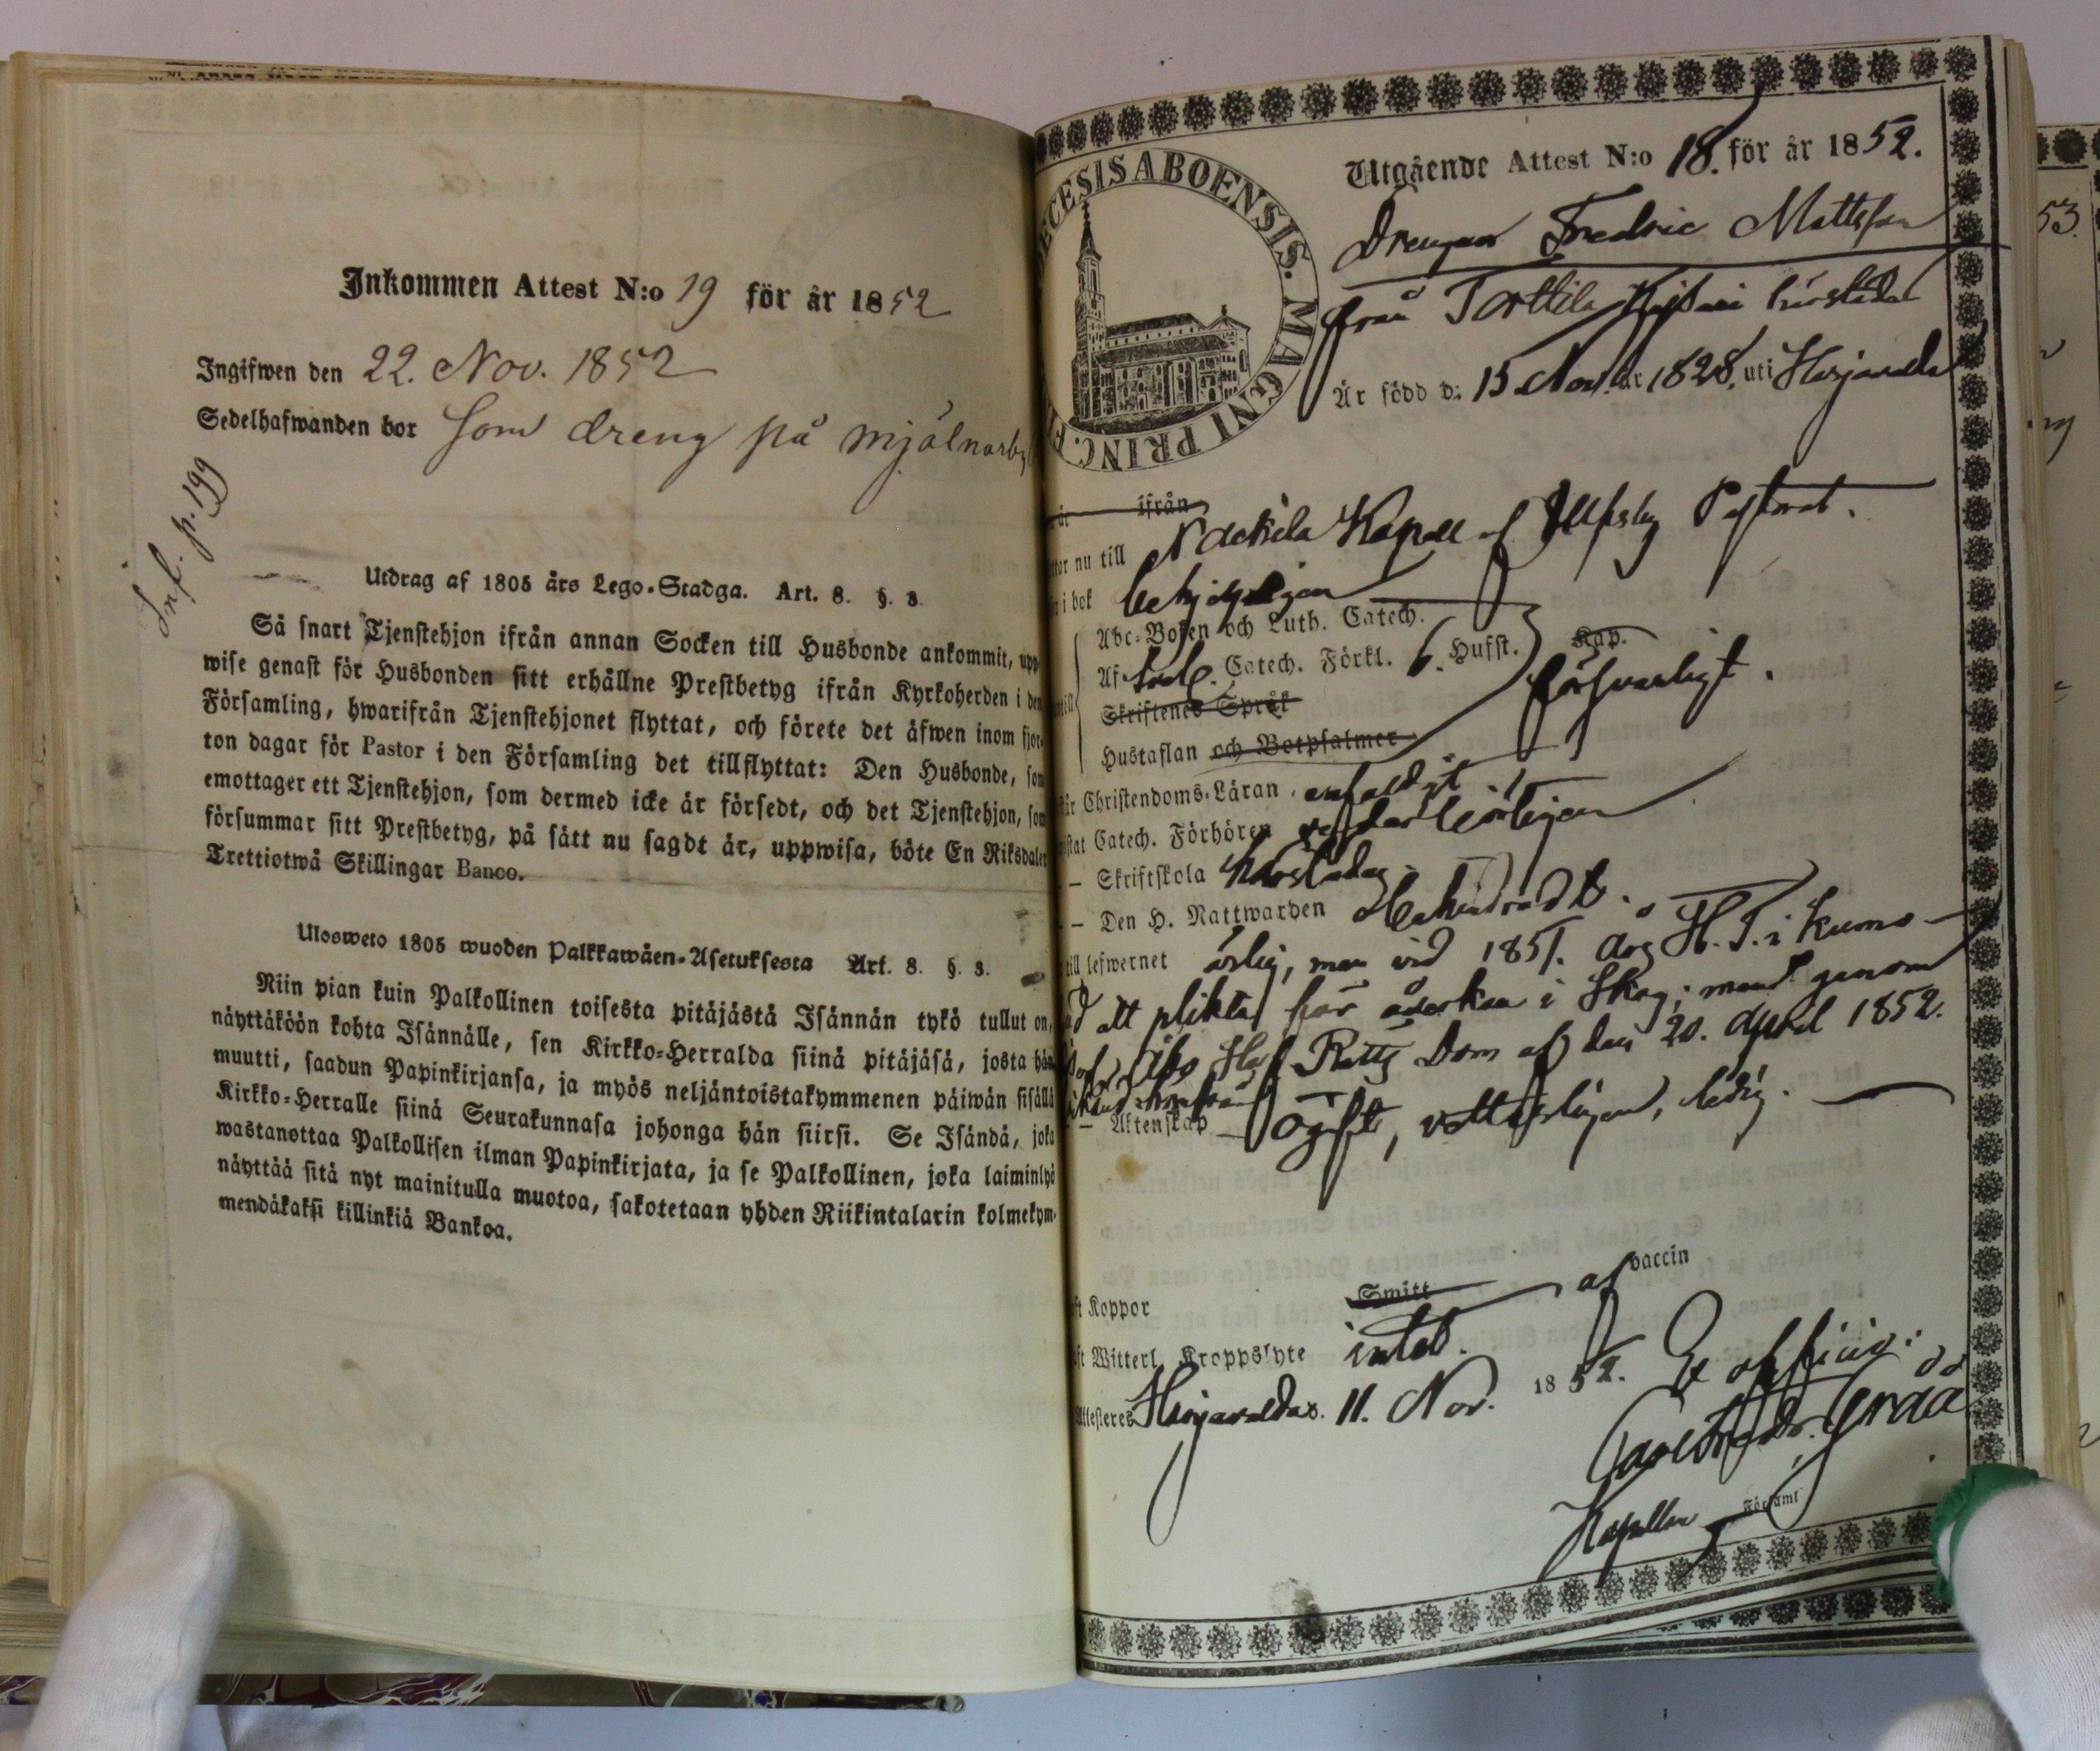 Inkommen Attest N:o 19 för år 1852
Ingifwen den 22. Nov. 1852
Sedelhafwanden bor som dreng på mjölnarby
Inf. p. 199
Utdrag af 1805 års Lego-Stadga. Art. 8. §. 3.
Så snart Tjenstehjon ifrån annan Socken till Husbonde ankommit, upp-
wise genast för Husbonden sitt erhållne Prestbetyg ifrån Kyrkoherden i den
Församling, hwarifrån Tjenstehjonet flyttat, och förete det äfwen inom fjor-
ton dagar för Pastor i den Församling det tillflyttat: Den Husbonde, som
emottager ett Tjenstehjon, som dermed icke är försedt, och det Tjenstehjon, som
försummar sitt Prestbetyg, på sätt nu sagdt är, uppwisa, böte En Riksdaler
Trettiotwå Skillingar Banco.
Ulosweto 1805 wuoden Palkkawäen-Asetuksesta Art. 8. §. 3.
Niin pian kuin Palkollinen toisesta pitäjästä Isännän tykö tullut on,
näyttäköön kohta Isännälle, sen Kirkko-Herralda siinä pitäjäsä, josta hän
muutti, saadun Papinkirjansa, ja myös neljäntoistakymmenen päiwän sisällä
Kirkko-Herralle siinä Seurakunnasa johonga hän siirsi. Se Isändä, joka
wastanottaa Palkollisen ilman Papinkirjata, ja se Palkollinen, joka laiminlyö
näyttää sitä nyt mainitulla muotoa, sakotetaan yhden Riikintalarin kolmekym-
mendäkaksi killinkiä Bankoa.
ECESIS ABOENSIS. MAGNI PRINC. F
Utgående Attest N:o 18. för år 1852.
Drengen Fredric Mattsson
från Torttila härstädes
Är född d: 15 Nov. år 1828, uti Harjavalda
ifrån
nu till Nackila Kapell af Ulfsby Pastorat.
i bok behjelpligen
Abc-Boken och Luth. Catech.
Af Catech. Förkl. 6. Hufst. Kap.
försvarligt.
Skriftenes Språk
Hustaflan och Botpsalmer
Christendoms-Läran enfaldigt
Catech. Förhören
– Skriftskola härstädes
– Den H. Nattwarden
till lefwernet ärlig, men vid 1851. års H. T. i Kumo
att plikta för åverkan i Skog; men genom
Åbo Hof Rätts Dom af den 20. April 1852.
– Äktenskap Ogift, ledig.
Koppor Smitt af vaccin
Witterl. Kroppslyte intet.
Attesteras Harjavalda d. 11. Nov. 1852. Ex officio:
Carl Fredr. Gråå
Kapellan Församl